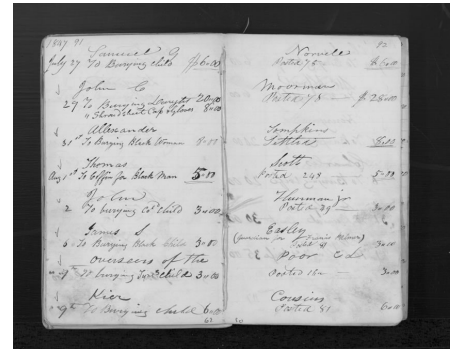 1857 91
Samuel G
July 27 To Burying child $6.00
John C
29 To Burying Daughter 20.00
" Shroud Cap & gloves 8.00
Allexander
31st To Burying Black Woman 8.00
Thomas
Aug 1st To Coffin for Black Man 5.00
John
2 To burying Cold child 3.00
James S
6 To Burying Black Child 3.00
Overseers of the
To burying child 3.00
Kier
9th To Burying child 6.00
61
92
Norvell
Posted 75 $6.00
Moorman
Posted 78 $28.00
Tompkins
Settled 8.00
Scott
Posted 249 5.00
Jr
Posted 29 3.00
Easley
3.00
Poor
Posted 3.00
Cousins
Posted 81 6.00